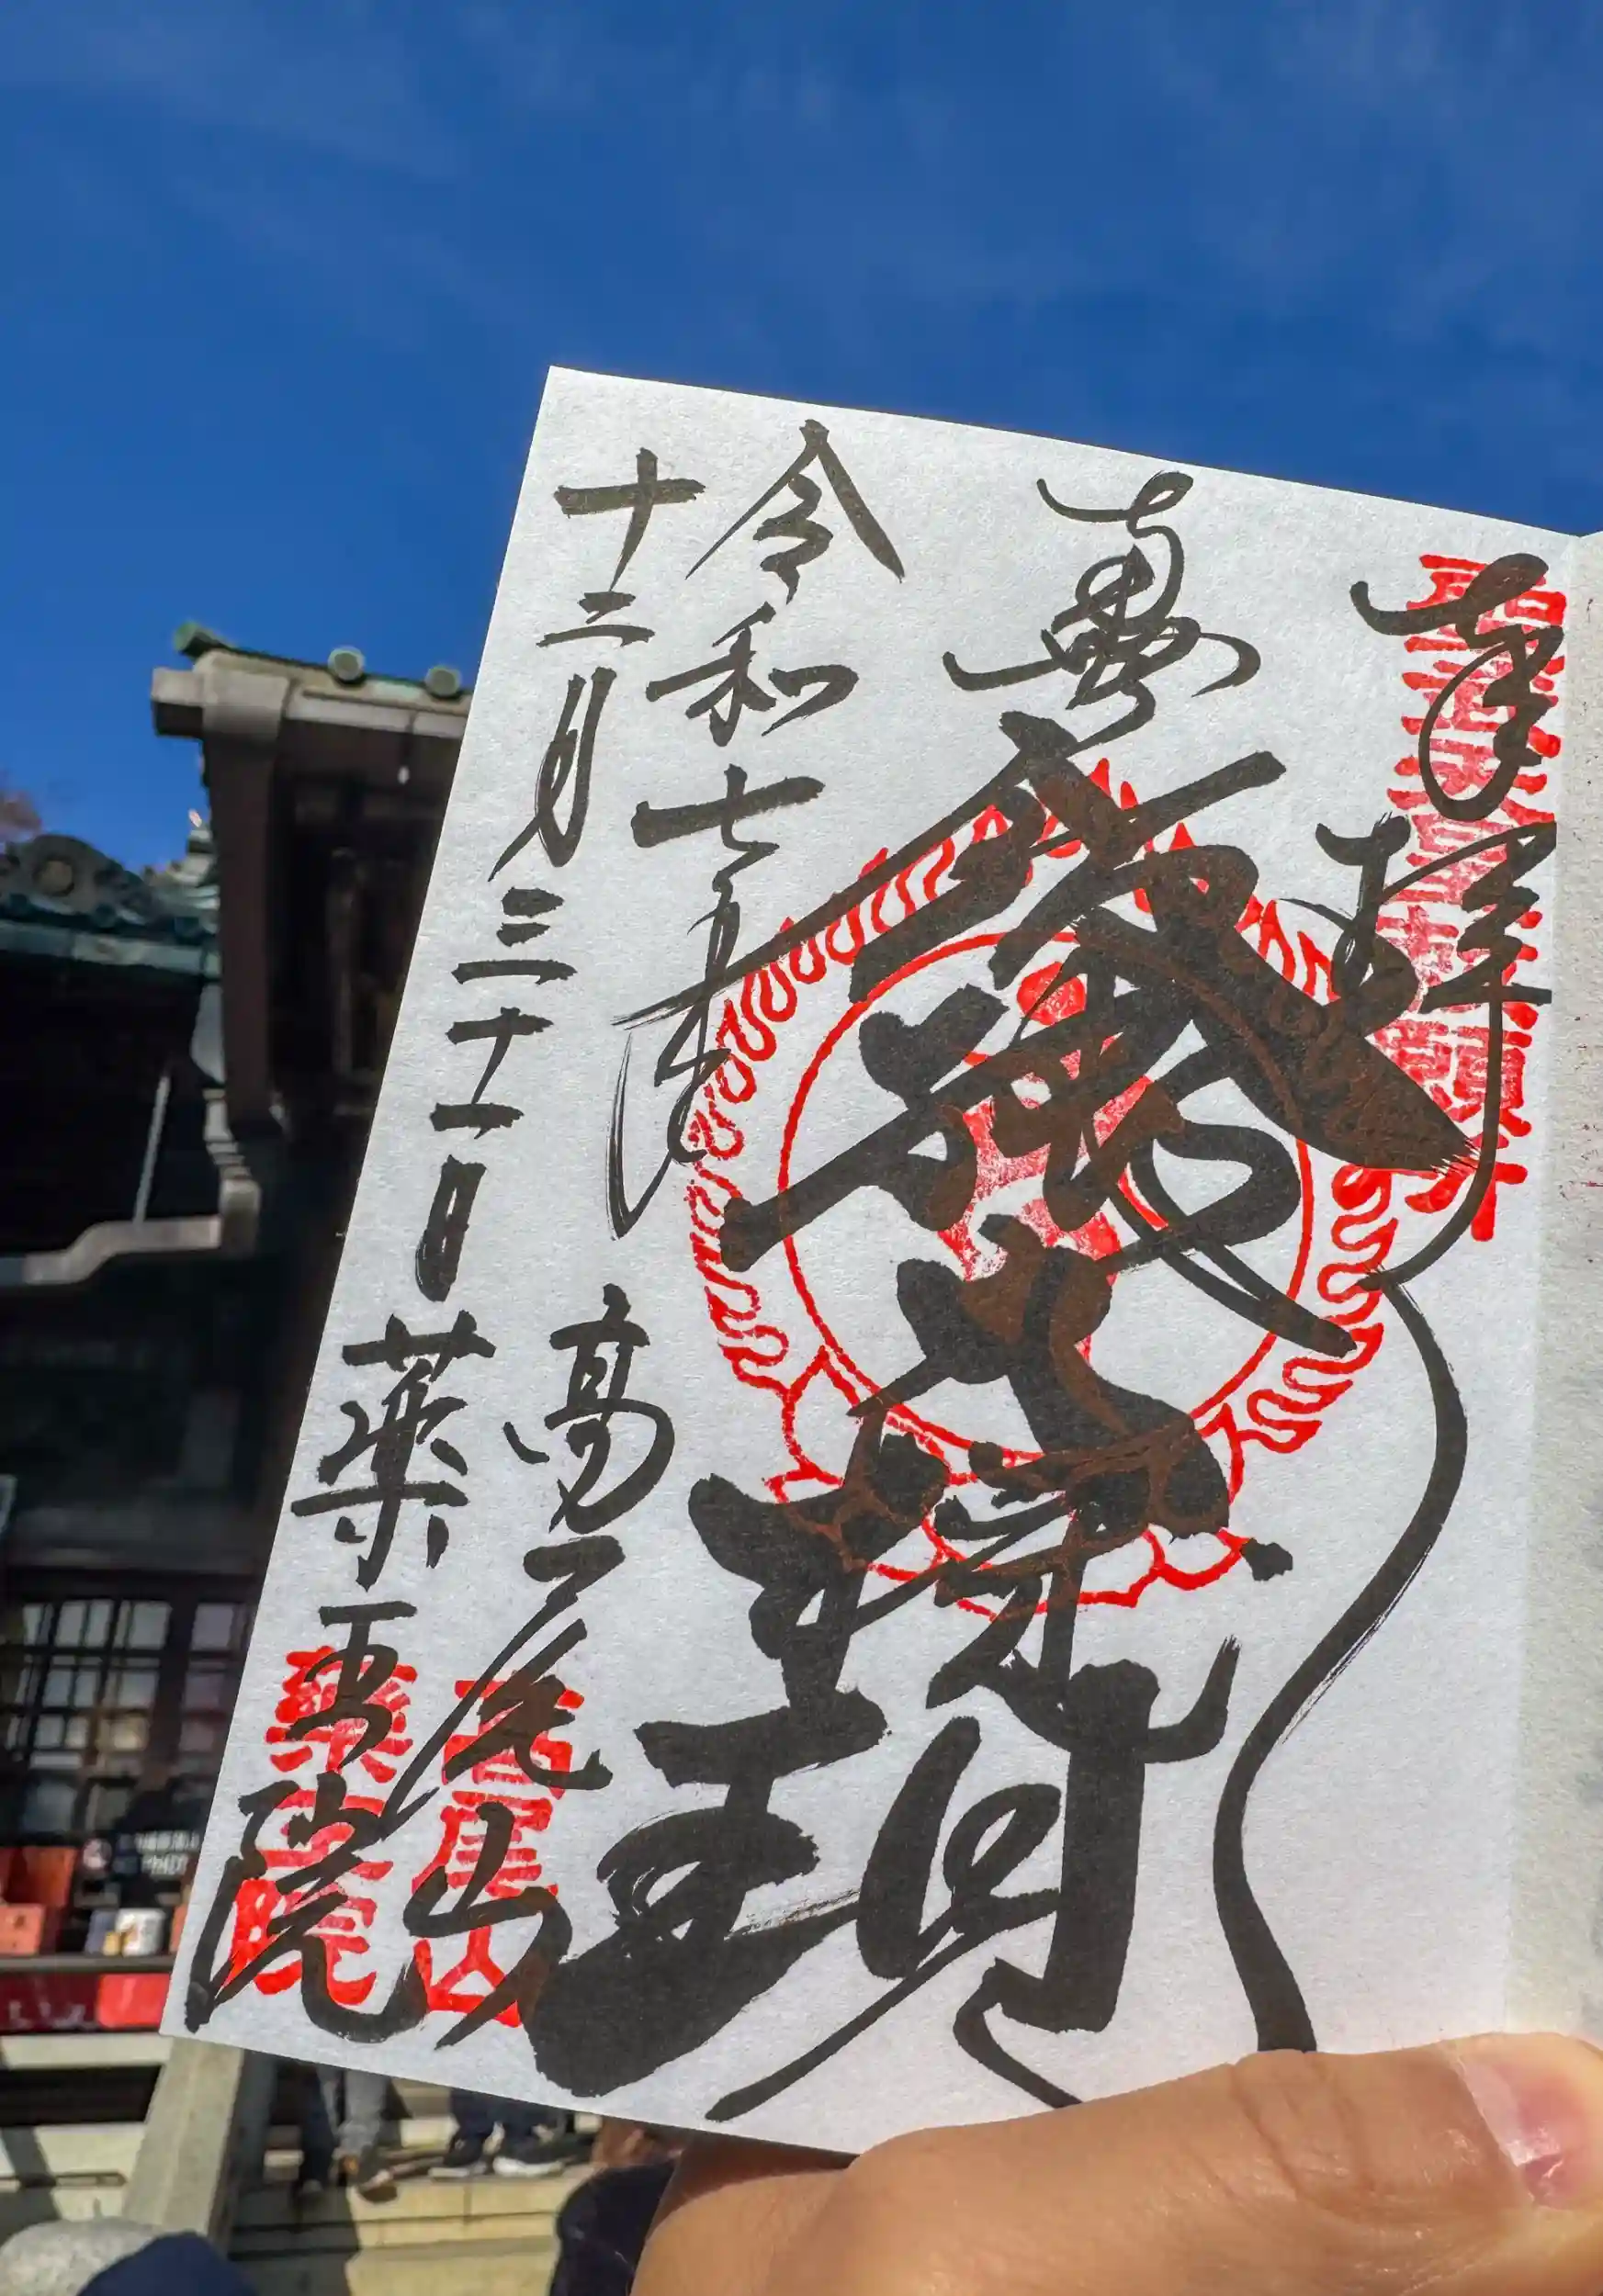 奉拝
飯縄大権現
令和七年
十二月三十一日
高尾山
薬王院
高尾山
藥王院